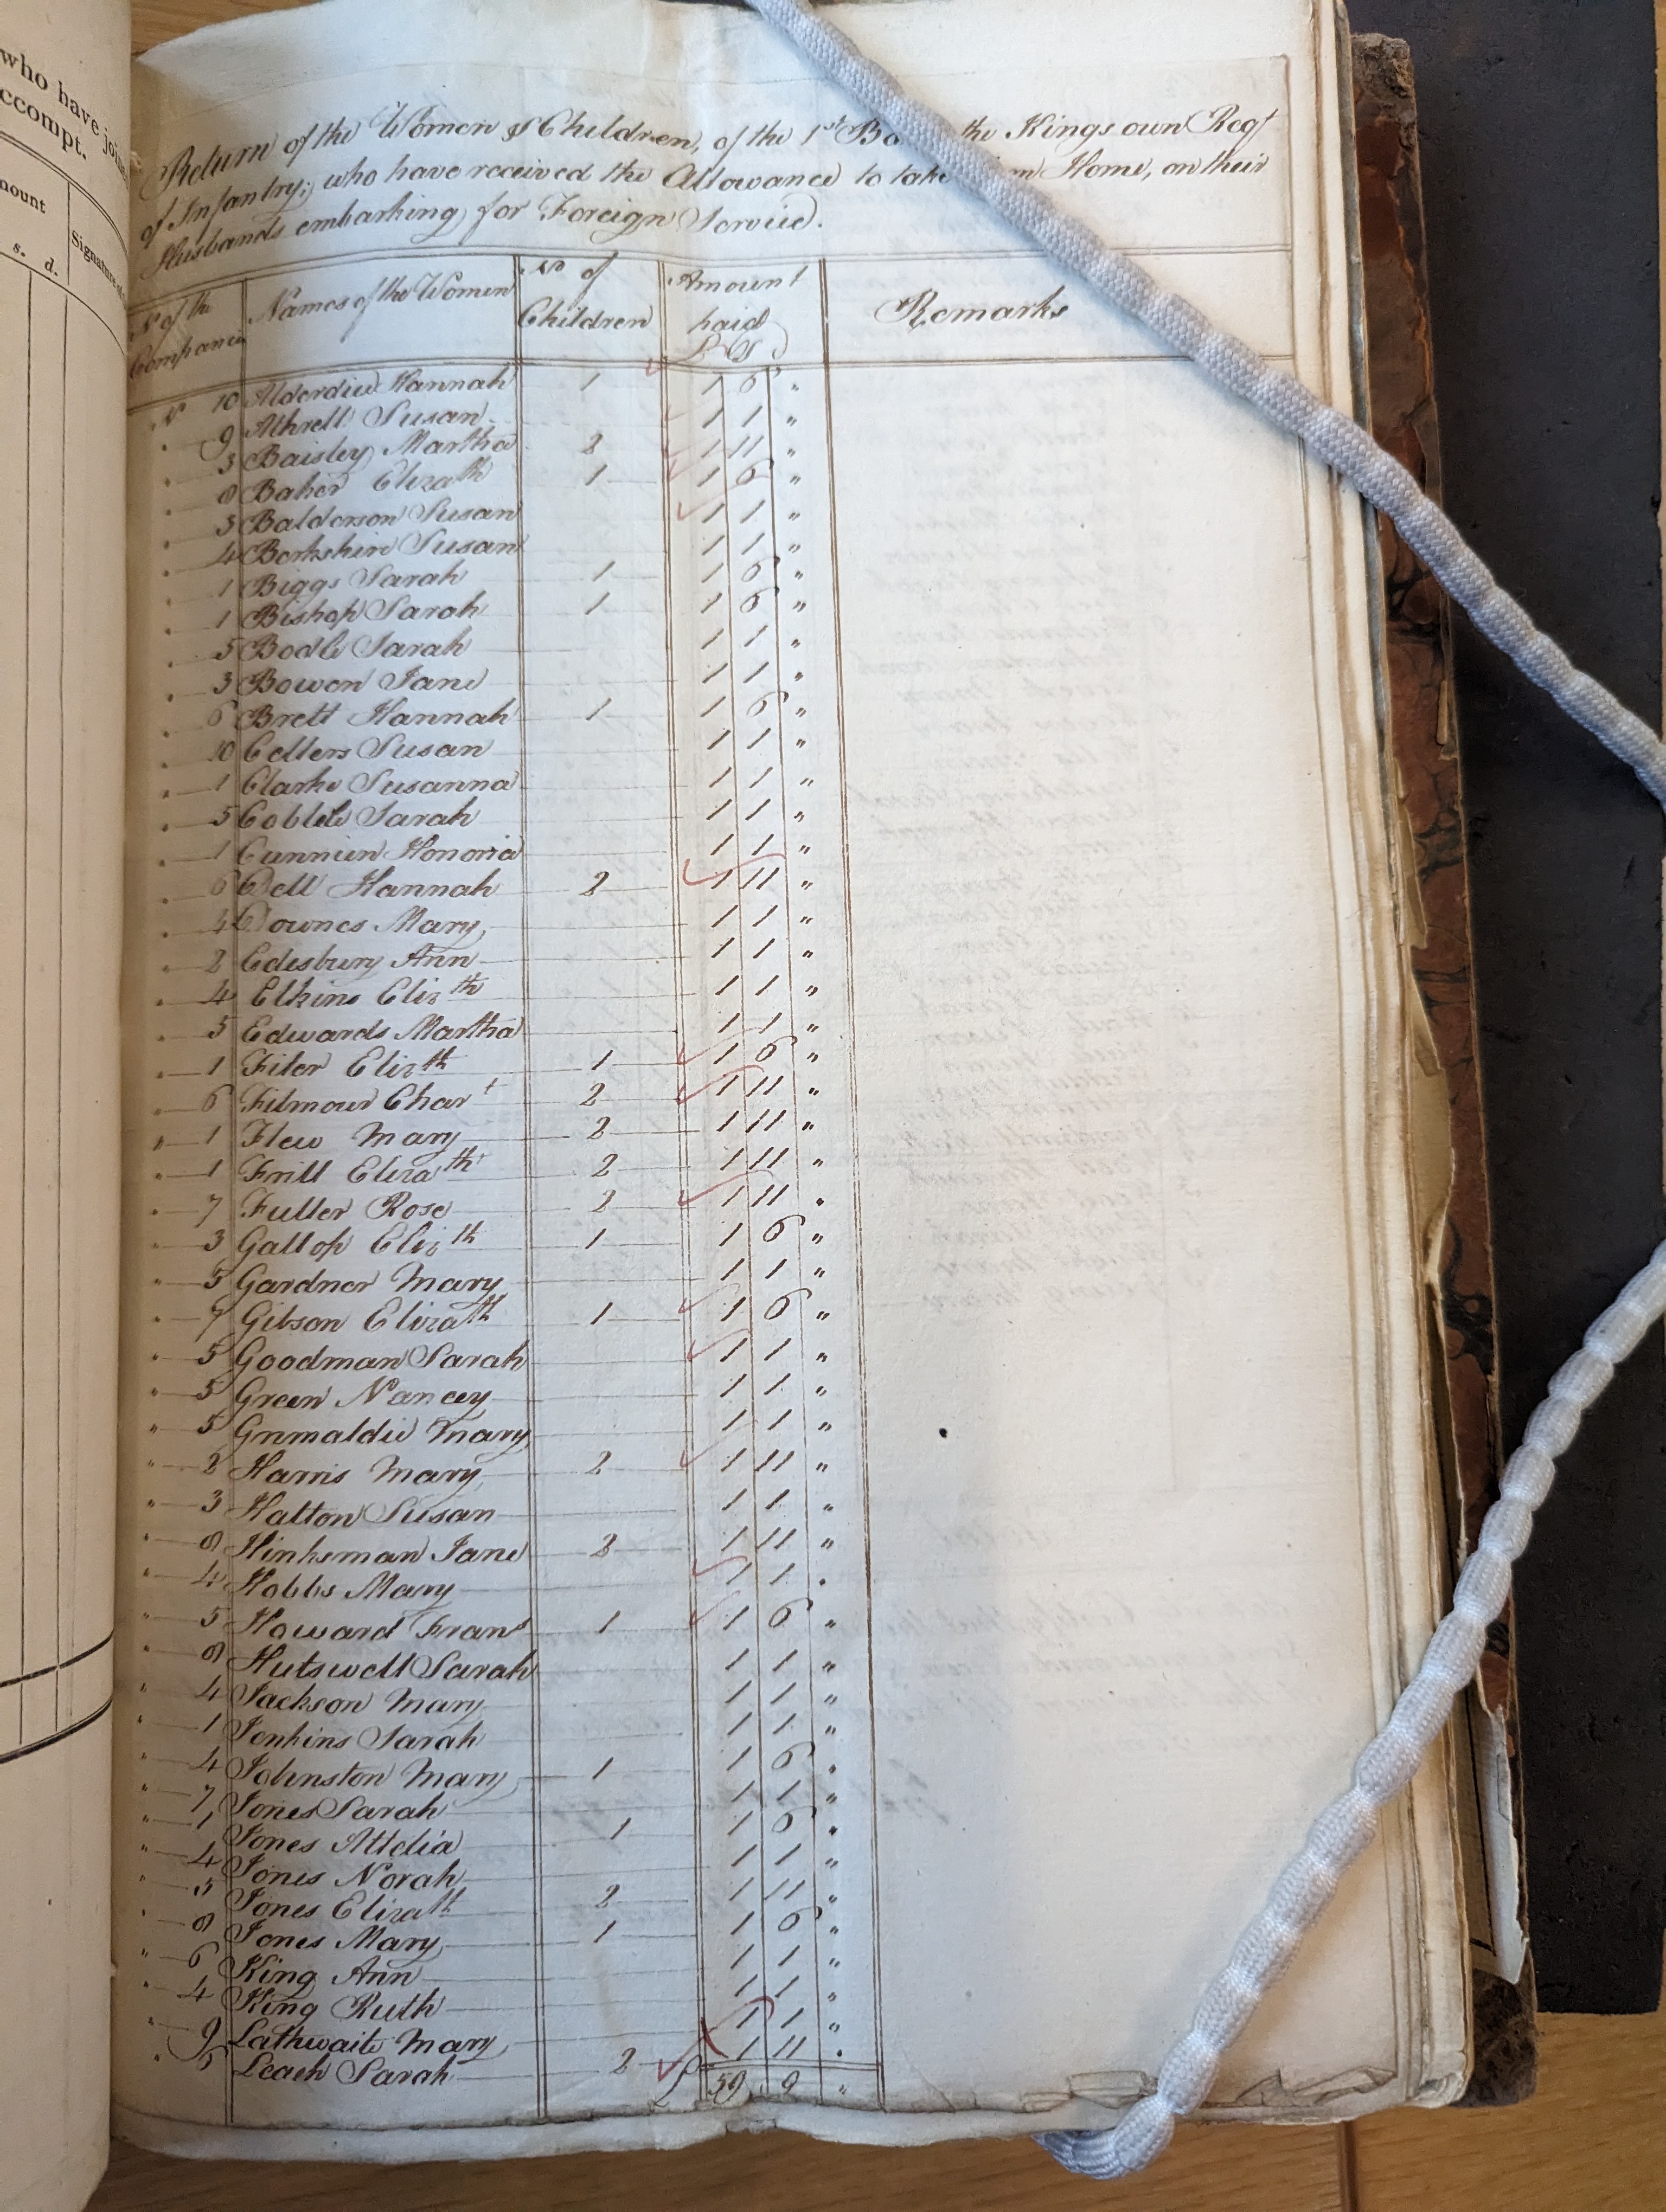 who have join
ccompt.
mount
s. d.
Signature of
Return of the Women & Children, of the 1st the Kings own Regt
of Infantry; who have received the Allowance to take Home, on their
Husbands embarking for Foreign Service.
No of the Companies Names of the Women No of Children Amount paid Remarks
£ S D
No 10 Alderdice Hannah 1 1 6 "
" 9 Athrell Susan 1 1 "
" 3 Baisley Martha 2 1 11 "
" 8 Baker Elizath 1 1 6 "
" 3 Balderson Susan 1 1 "
" 4 Berkshire Susan 1 1 "
" 1 Biggs Sarah 1 1 6 "
" 1 Bishop Sarah 1 1 6 "
" 5 Bodle Sarah 1 1 "
" 3 Bowen Jane 1 1 "
" 6 Brett Hannah 1 1 6 "
" 10 Cellers Susan 1 1 "
" 1 Clarke Susanna 1 1 "
" 5 Sarah 1 1 "
" 1 Cunnien Honoria 1 1 "
" 6 Dell Hannah 2 1 11 "
" 4 Downes Mary 1 1 "
" 2 Edesbury Ann 1 1 "
" 4 Elkins Elizth 1 1 "
" 5 Edwards Martha 1 1 "
" 1 Fiter Elizth 1 1 6 "
" 6 Filmour Chart 2 1 11 "
" 1 Flew Mary 2 1 11 "
" 1 Frill Elizath 2 1 11 "
" 7 Fuller Rose 2 1 11 "
" 3 Gallop Elizth 1 1 6 "
" 5 Gardner Mary 1 1 "
" 7 Gibson Elizath 1 1 6 "
" 5 Goodman Sarah 1 1 "
" 5 Green Nancey 1 1 "
" 5 Grimaldie Mary 1 1 "
" 2 Harris Mary 2 1 11 "
" 3 Hatton Susan 1 1 "
" 8 Hinkeman Jane 2 1 11 "
" 4 Hobbs Mary 1 1 "
" 5 Howard Frans 1 1 6 "
" 8 Hutswell Sarah 1 1 "
" 4 Jackson Mary 1 1 "
" 1 Jenkins Sarah 1 1 "
" 4 Johnston Mary 1 1 6 "
" 7 Jones Sarah 1 1 "
" 1 Jones Attelia 1 1 6 "
" 4 Jones Norah 1 1 "
" 5 Jones Elizath 2 1 11 "
" 8 Jones Mary 1 1 6 "
" 6 King Ann 1 1 "
" 4 King Ruth 1 1 "
" 9 Lathwaite Mary 1 1 "
" 5 Leach Sarah 2 1 11 "
£ 59 9 "